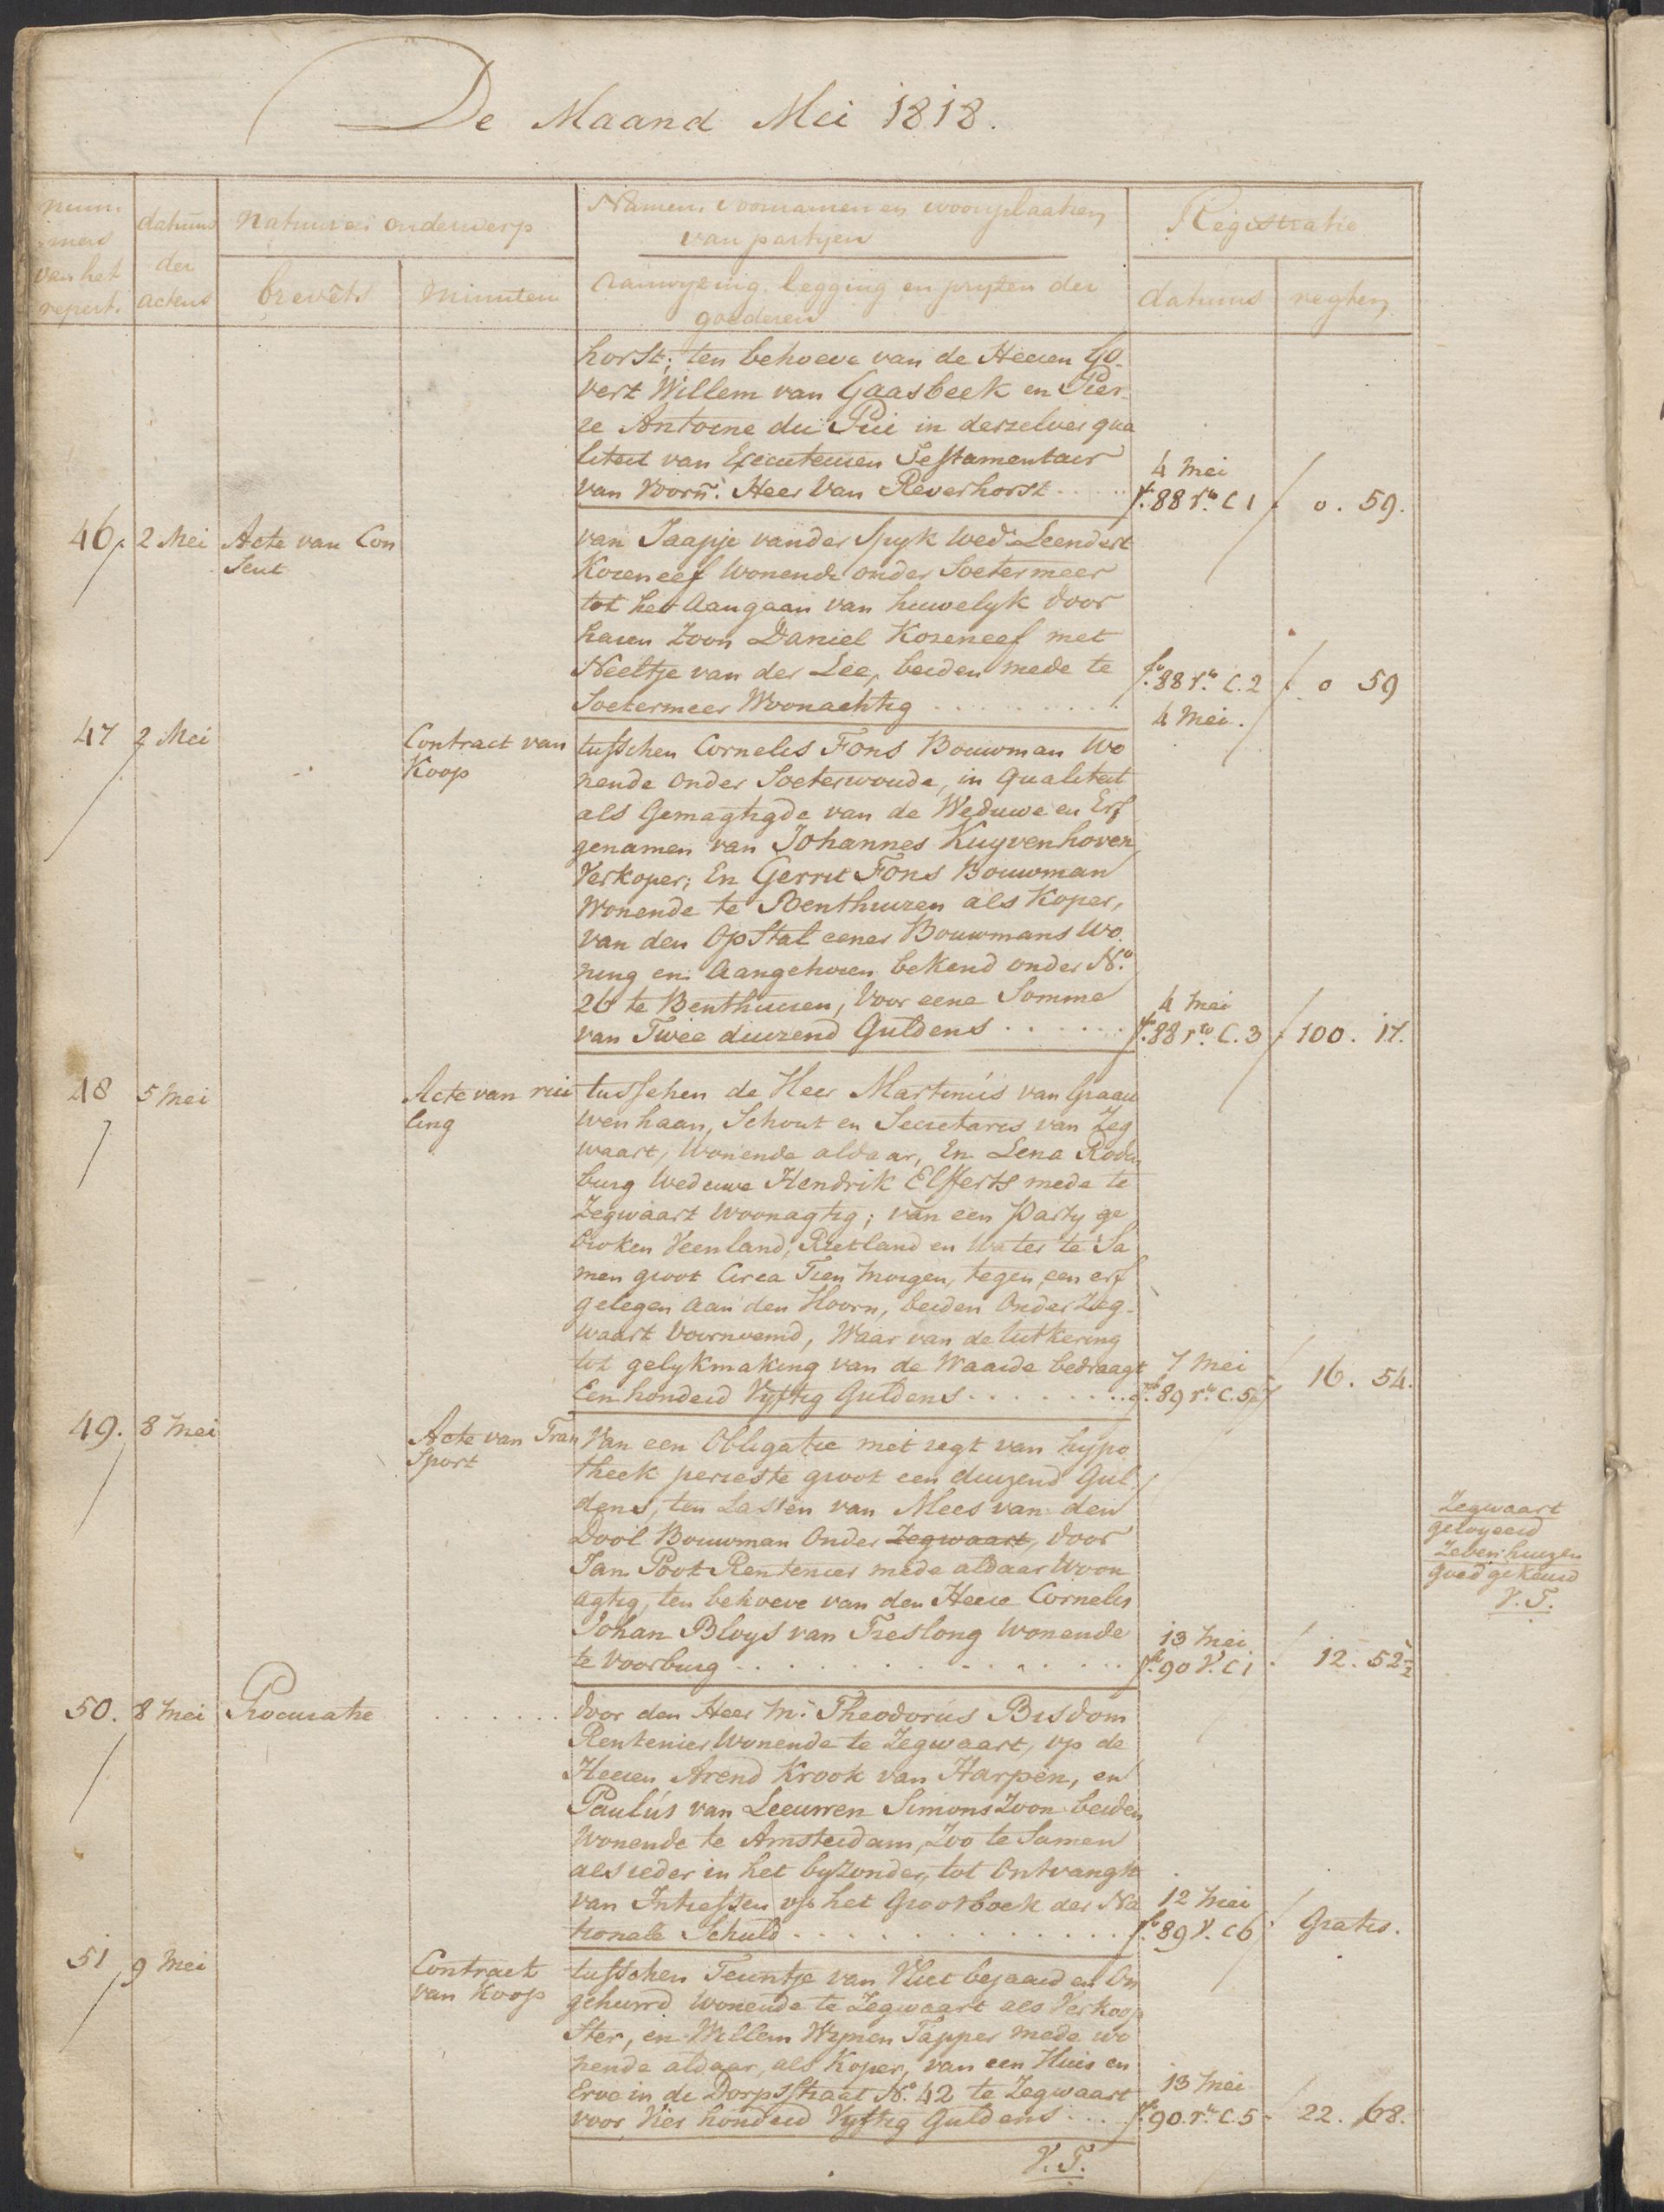 De Maand Mei 1818.
num-
mers
van het
repert.
datums
der
actens
Natuur en onderwerp
brevets
minuten
Namen, voornamen en woonplaatsen,
van partijen
Aanwyzing, legging en pryzen der
goederen
Registratie
datums
regten
horst; ten behoeve van de Heeren Go-
vert Willem van Gaasbeek en Pier-
re Antoine du Pui in derzelver qua
liteit van Executeuren Testamentair
van voorñ: Heer Van Reverhorst . . . . .
4 Mei
f.º 88 r.º C 1
/ 0 . 59.
46. 2 Mei Acte van Con
sent
van Jaapje vander Spyk wed. Leendert
Koreneef Wonende onder Soetermeer
tot het aangaan van huwelyk door
haren Zoon Daniel Koreneef met
Neeltje van der Lee, beiden mede te
Soetermeer Woonachtig . . . . . . . . .
f.º 88 r.º C. 2
4 Mei.
/ 0 59
47 2 Mei Contract van
Koop
tusschen Cornelis Fons Bouwman Wo
nende onder Soeterwoude, in qualiteit
als Gemagtigde van de Weduwe en Erf
genamen van Johannes Kuyvenhoven
Verkoper; En Gerrit Fons Bouwman
Wonende te Benthuizen als Koper,
van den Opstal eener Bouwmans Wo
ning en aangehoren bekend onder N.º
26 te Benthuizen, Voor eene Somme
van Twee duizend Guldens . . . . . .
4 Mei
f.º 88 r.to C. 3
/ 100 . 17.
48 5 Mei Acte van rui
ling
tusschen de Heer Martinus van Graau
wen haan, Schout en Secretaris van Zeg
waart, Wonende aldaar, En Lena Roden
burg Weduwe Hendrik Elfferts mede te
Zegwaart Woonagtig; van een Party ge
broken Veenland, Rietland en Water te Sa
men groot Circa Tien Morgen, tegen een erf
gelegen aan den Hoorn, beiden Onder Zeg-
waart Voornoemd, Waar van de Uitkering
tot gelykmaking van de Waarde bedraagt
Een honderd Vyftig Guldens . . . . . . . .
7 Mei
f.º 89 r.º C. 5
16 . 54.
49. 8 Mei Acte van Tran
sport
Van een Obligatie met regt van hypo
theek per reste groot een duizend Gul
dens, ten Lasten van Mees van den
Dool Bouwman Onder Zegwaart, door
Jan Poot Rentenier mede aldaar Woon
agtig, ten behoeve van den Heere Cornelis
Johan Bloys van Treslong Wonende
te Voorburg . . . . . . . . . . . . . .
13 Mei
f.º 90 V. C 1
12 . 52½
Zegwaart
geroyeerd
Zevenhuizen
goedgekeurd
V. T.
50. 8 Mei Procuratie . . . . . .
door den Heer Mr. Theodorus Bisdom
Rentenier Wonende te Zegwaart, op de
Heeren Arend Krook van Harpen, en
Paulus van Leeuwen Simons Zoon beiden
Wonende te Amsterdam, Zoo te Samen
als ieder in het byzonder, tot Ontvangst
van Intressen op het Grootboek der Na
tionale Schuld . . . . . . . . . . . . .
12 Mei
f.º 89 V. C 6
Gratis.
51 9 Mei Contract
van Koop
tusschen Teuntje van Vliet bejaard en On
gehuwd Wonende te Zegwaart als Verkoop
ster, en Willem Wynen Tapper mede wo
nende aldaar, als Koper, van een Huis en
Erve in de Dorpsstraat N.º 42 te Zegwaart
voor Vier honderd Vyftig Guldens . . . .
13 Mei
f.º 90. r.º C. 5
22 . 68.
V. T.